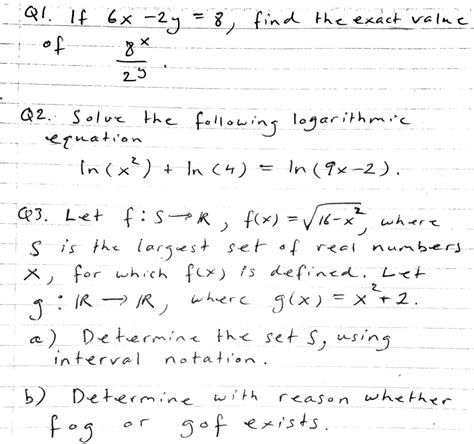 Q1. If 6x - 2y = 8, find the exact value
of 8^x / 2^y.
Q2. Solve the following logarithmic
equation
ln(x²) + ln(4) = ln(9x-2).
Q3. Let f : S → ℝ, f(x) = √(16-x²), where
S is the largest set of real numbers
x, for which f(x) is defined. Let
g : ℝ → ℝ, where g(x) = x² + 2.
a) Determine the set S, using
interval notation.
b) Determine with reason whether
fog or gof exists.